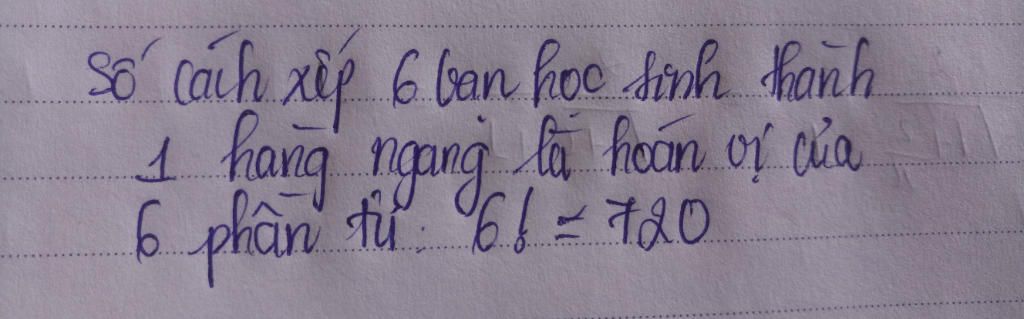 Số cách xếp 6 bạn học sinh thành
1 hàng ngang là hoán vị của
6 phần tử: 6! = 720